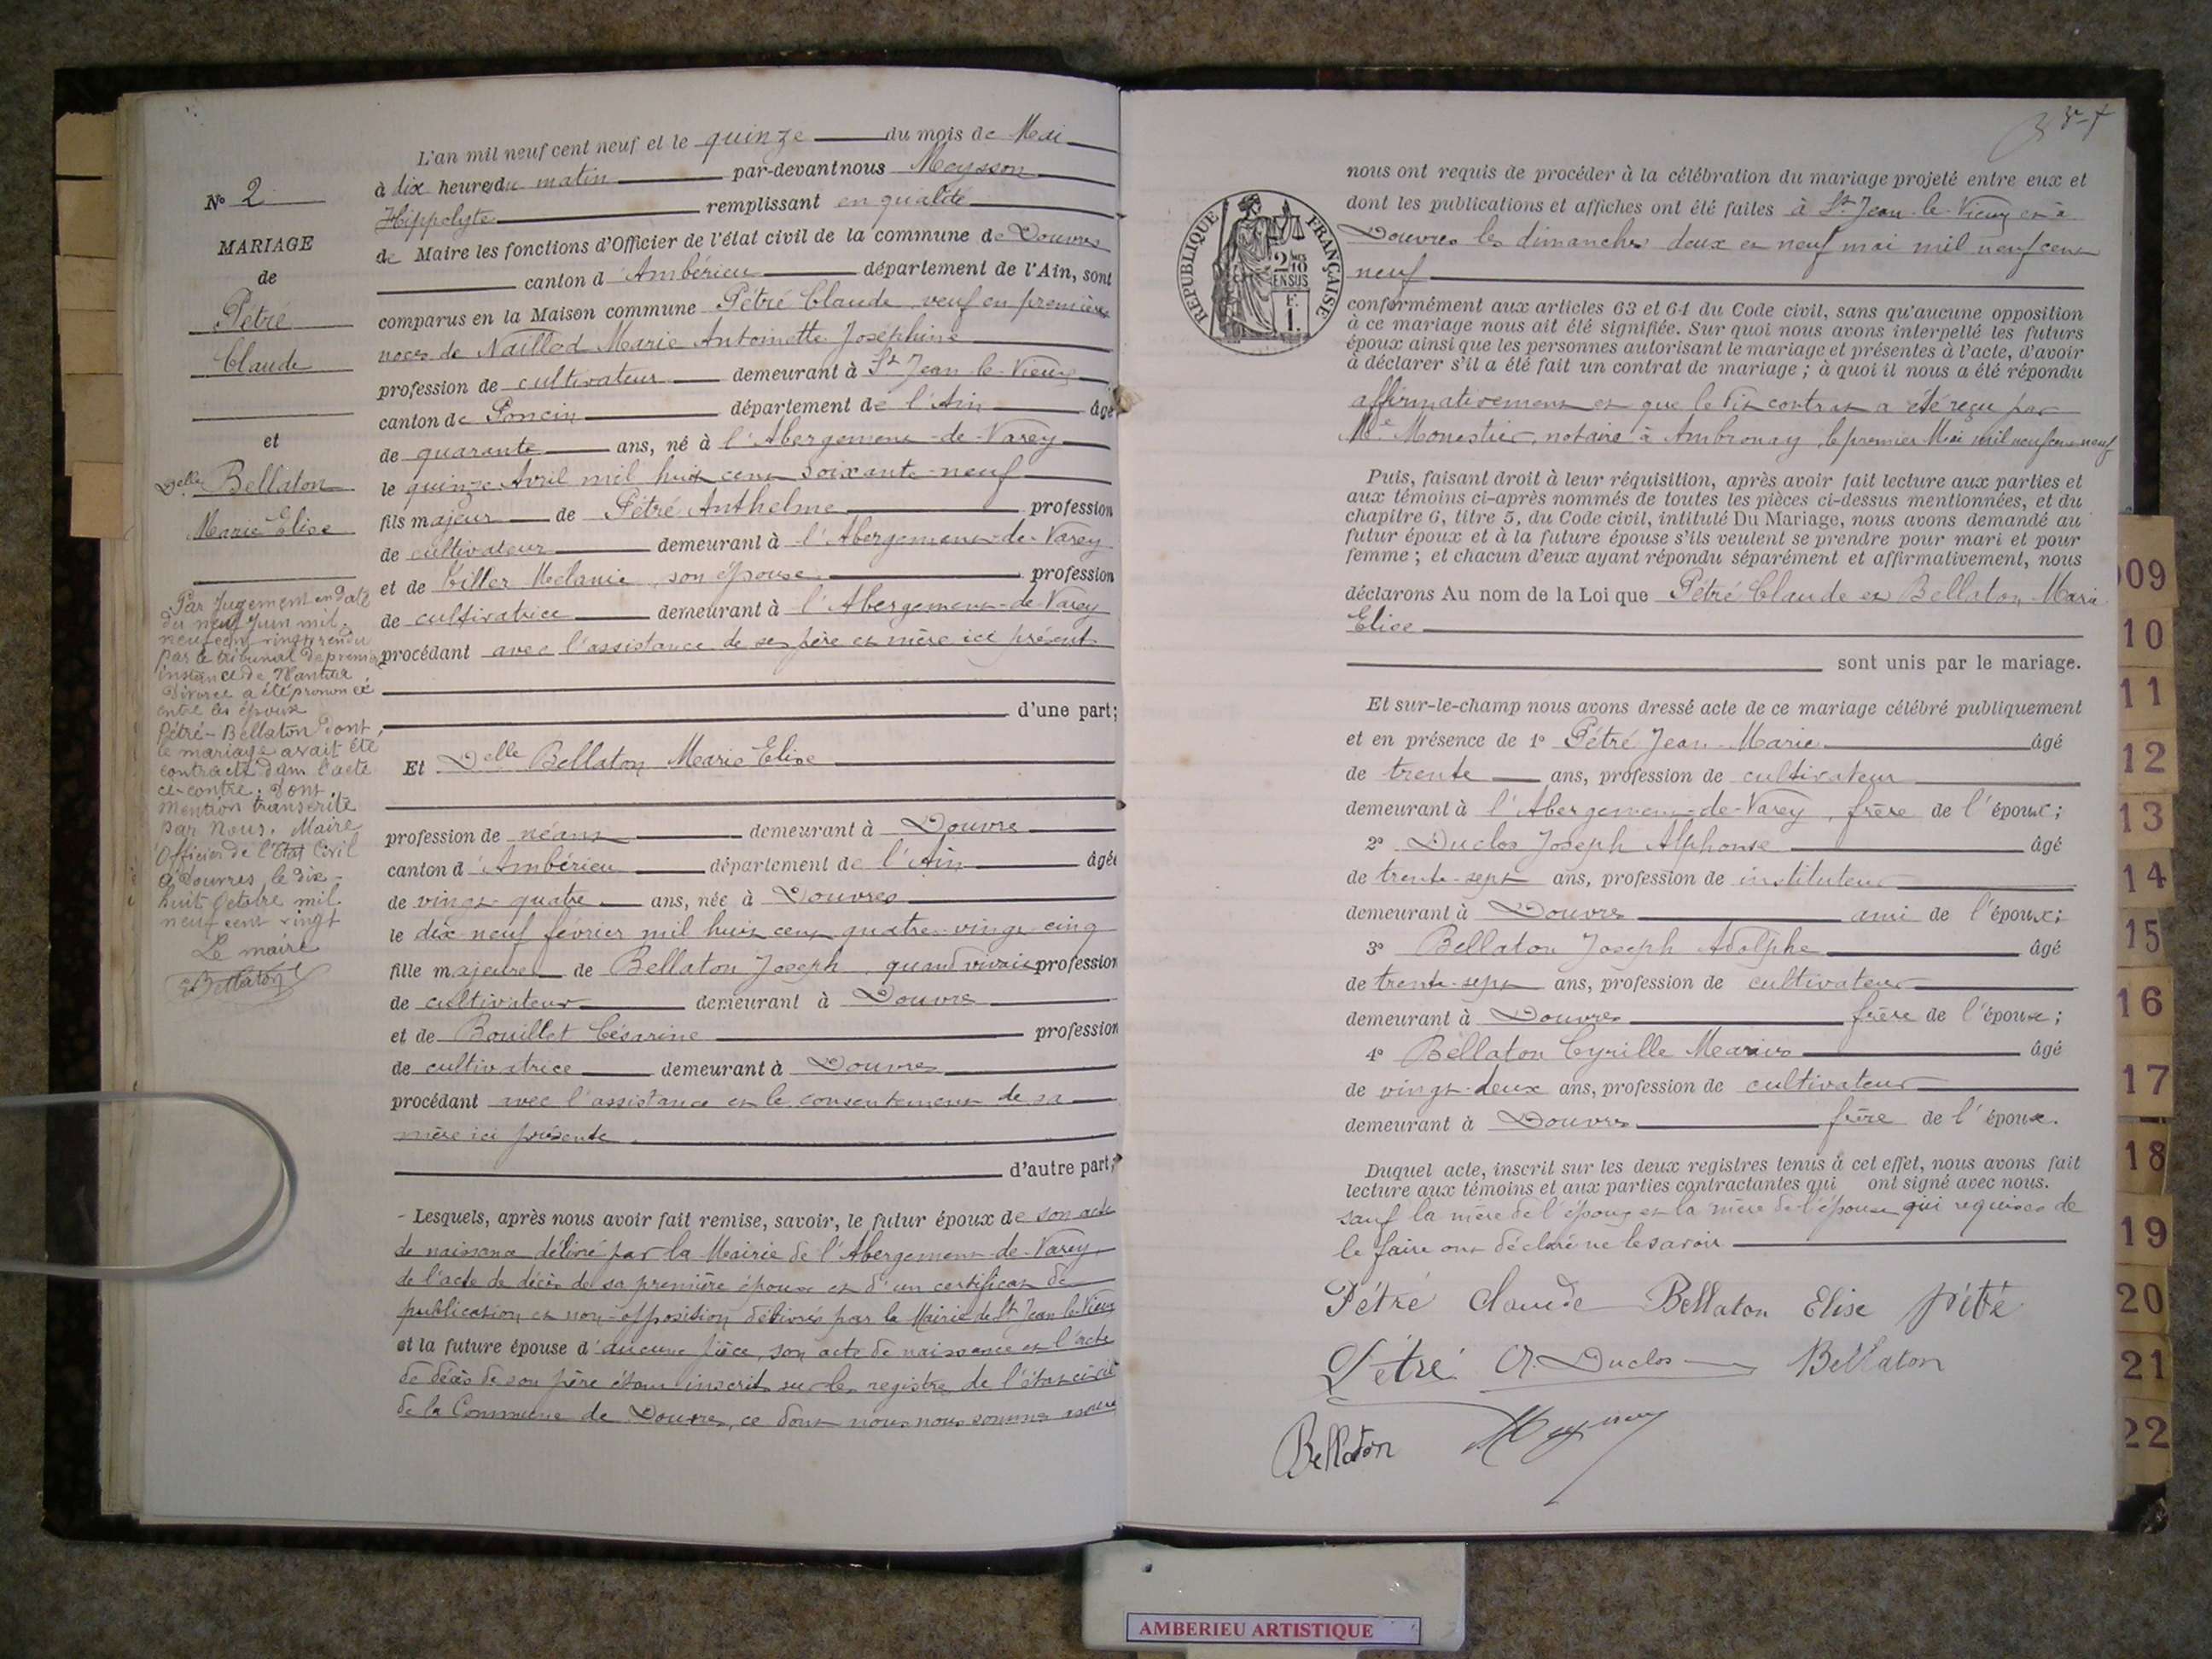 L'an mil neuf cent neuf et le quinze du mois de Mai
à dix heures du matin par-devant nous Moysson
Hippolyte remplissant en qualité
de Maire les fonctions d'Officier de l'état civil de la commune de Douvres
canton d'Ambérieu département de l'Ain, sont
comparus en la Maison commune Pétré Claude, veuf en premières
noces de Naillod Marie Antoinette Joséphine
profession de cultivateur demeurant à St Jean-le-Vieux
canton de Poncin département de l'Ain âgé
de quarante ans, né à l'Abergement-de-Varey
le quinze Avril mil huit cent soixante-neuf
fils majeur de Pétré Anthelme profession
de cultivateur demeurant à l'Abergement-de-Varey
et de Killer Mélanie, son épouse profession
de cultivatrice demeurant à l'Abergement-de-Varey
procédant avec l'assistance de ses père et mère ici présent
d'une part;
Et Delle Bellaton Marie Elise
profession de néant demeurant à Douvres
canton d'Ambérieu département de l'Ain âgée
de vingt-quatre ans, née à Douvres
le dix-neuf février mil huit cent quatre-vingt-cinq
fille majeure de Bellaton Joseph, quand vivait profession
de cultivateur demeurant à Douvres
et de Bouillet Césarine profession
de cultivatrice demeurant à Douvres
procédant avec l'assistance et le consentement de sa
mère ici présente
d'autre part;
- Lesquels, après nous avoir fait remise, savoir, le futur époux de son acte
de naissance délivré par la Mairie de l'Abergement-de-Varey,
de l'acte de décès de sa première épouse et d'un certificat de
publication et non-opposition délivrés par la Mairie de St Jean-le-Vieux
et la future épouse d'aucune pièce, son acte de naissance et l'acte
de décès de son père étant inscrits sur les registres de l'état civil
de la Commune de Douvres, ce dont nous nous sommes assuré
No 2
MARIAGE
de
Pétré
Claude
et
Delle Bellaton
Marie Elise
Par Jugement en date
du neuf Juin mil
neuf cent vingt rendu
par le tribunal de première
instance de Nantua
Divorce a été prononcé
entre les époux
Pétré-Bellaton dont
le mariage avait été
contracté dans l'acte
ci-contre. Dont
mention transcrite
par Nous, Maire
Officier de l'Etat Civil
à Douvres le dix-
huit Octobre mil
neuf cent vingt
Le maire
Bellaton
nous ont requis de procéder à la célébration du mariage projeté entre eux et
dont les publications et affiches ont été faites à St Jean-le-Vieux et à
Douvres les dimanches deux et neuf mai mil neuf cent
neuf
conformément aux articles 63 et 64 du Code civil, sans qu'aucune opposition
à ce mariage nous ait été signifiée. Sur quoi nous avons interpellé les futurs
époux ainsi que les personnes autorisant le mariage et présentes à l'acte, d'avoir
à déclarer s'il a été fait un contrat de mariage ; à quoi il nous a été répondu
affirmativement et que le dit contrat a été reçu par
Me Monestier, notaire à Ambronay, le premier Mai mil neuf cent neuf
Puis, faisant droit à leur réquisition, après avoir fait lecture aux parties et
aux témoins ci-après nommés de toutes les pièces ci-dessus mentionnées, et du
chapitre 6, titre 5, du Code civil, intitulé Du Mariage, nous avons demandé au
futur époux et à la future épouse s'ils veulent se prendre pour mari et pour
femme ; et chacun d'eux ayant répondu séparément et affirmativement, nous
déclarons Au nom de la Loi que Pétré Claude et Bellaton Marie
Elise
sont unis par le mariage.
Et sur-le-champ nous avons dressé acte de ce mariage célébré publiquement
et en présence de 1º Pétré Jean-Marie âgé
de trente ans, profession de cultivateur
demeurant à l'Abergement-de-Varey, frère de l'époux;
2º Duclos Joseph Alphonse âgé
de trente-sept ans, profession de instituteur
demeurant à Douvres ami de l'époux;
3º Bellaton Joseph Adolphe âgé
de trente-sept ans, profession de cultivateur
demeurant à Douvres frère de l'épouse;
4º Bellaton Cyrille Marius âgé
de vingt-deux ans, profession de cultivateur
demeurant à Douvres frère de l'épouse.
Duquel acte, inscrit sur les deux registres tenus à cet effet, nous avons fait
lecture aux témoins et aux parties contractantes qui ont signé avec nous.
sauf la mère de l'époux et la mère de l'épouse qui requises de
le faire ont déclaré ne le savoir
Pétré Claude Bellaton Elise Pétré
Pétré A. Duclos Bellaton
Bellaton Moysson
RÉPUBLIQUE FRANÇAISE
09
10
11
12
13
14
15
16
17
18
19
20
21
22
AMBERIEU ARTISTIQUE